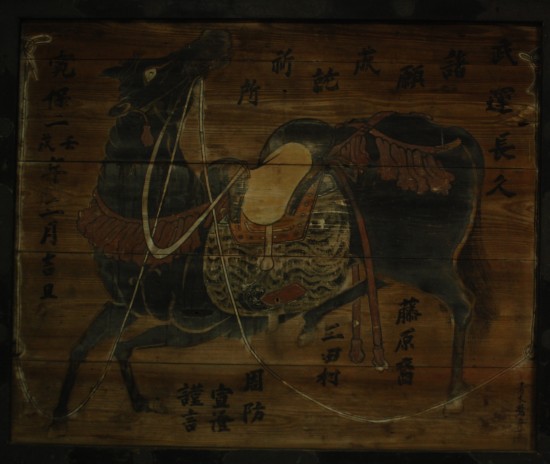 武運長久
諸願成就祈所
藤原裔
三田村
周防
謹言
寛保二壬戌年二月吉旦